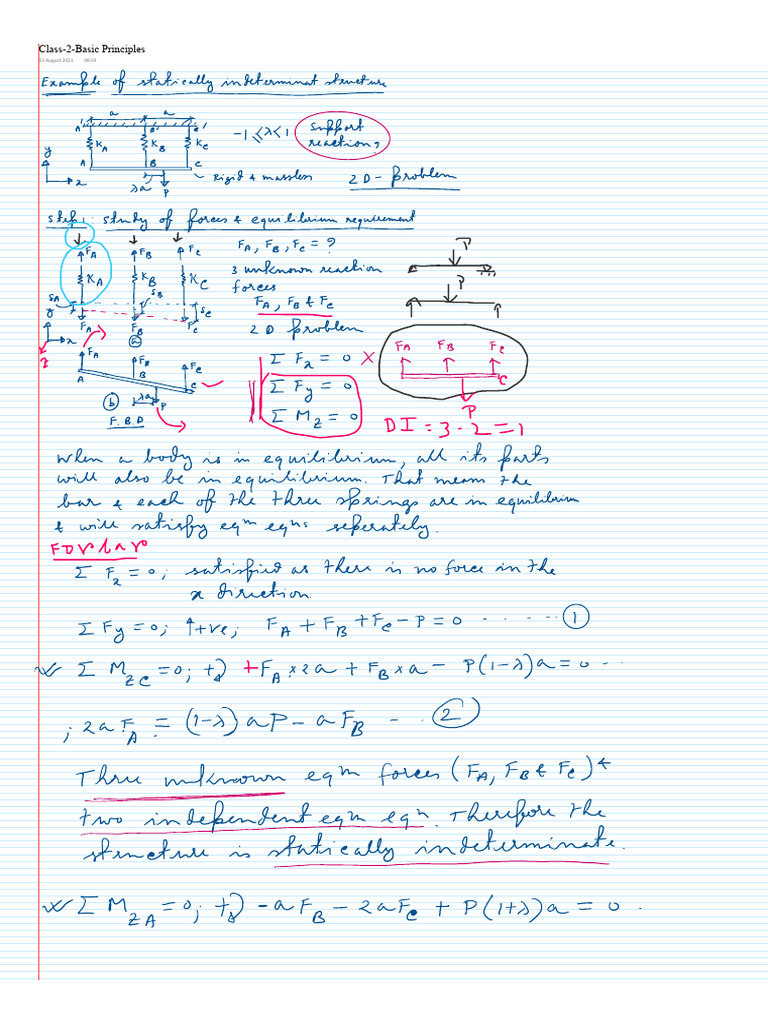 Class-2-Basic Principles
13 August 2021 08:58
Example of statically indeterminat structure
a a
A' B' C'
K_A K_B K_C
-1 ≤ λ ≤ 1
Support reaction?
y
A B C
x
λa P
Rigid & massless
2D-problem
Step 1: study of forces & equilibrium requirement
F_A F_B F_C
F_A, F_B, F_C = ?
P
K_A K_B K_C
3 unknown reaction
forces
P
δ_A δ_B δ_C
F_A, F_B & F_C
y
F_A F_B F_C
x
2D problem
F_A F_B F_C
z
ⓐ
F_A F_B F_C
Σ F_x = 0 X
A B C
Σ F_y = 0
C
ⓑ λa P
Σ M_z = 0
P
F.B.D
DI = 3 - 2 = 1
When a body is in equilibrium, all its parts
will also be in equilibrium. That means the
bar & each of the three springs are in equilibrium
& will satisfy eqm eqns seperately.
For bar
Σ F_x = 0; satisfied as there is no force in the
x direction.
Σ F_y = 0; ↑+ve; F_A + F_B + F_C - P = 0 ------ ①
Σ M_zC = 0; +↻ +F_A × 2a + F_B × a - P(1-λ)a = 0 ---
; 2a F_A = (1-λ)aP - aF_B -- ②
Three unknown eqm forces (F_A, F_B & F_C) &
two independent eqm eqn. Therefore the
structure is statically indeterminate.
Σ M_zA = 0; +↻ -aF_B - 2aF_C + P(1+λ)a = 0.